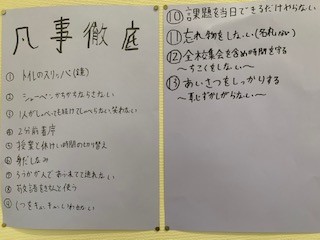 凡事徹底
① トイレのスリッパ(き)
② シャーペンカチカチならさない
③ 1人がしゃべても続けてしゃべらない笑わない
④ 2分前着席
⑤ 授業と休けい時間の切り替え
⑥ 身だしなみ
⑧ 敬語をきちんと使う
⑩ 課題を当日できるだけやらない
⑪ 忘れ物をしない(名札など)
⑫ 全校集会を含め時間を守る
〜ちこくをしない〜
⑬ あいさつをしっかりする
〜恥ずかしがらない〜